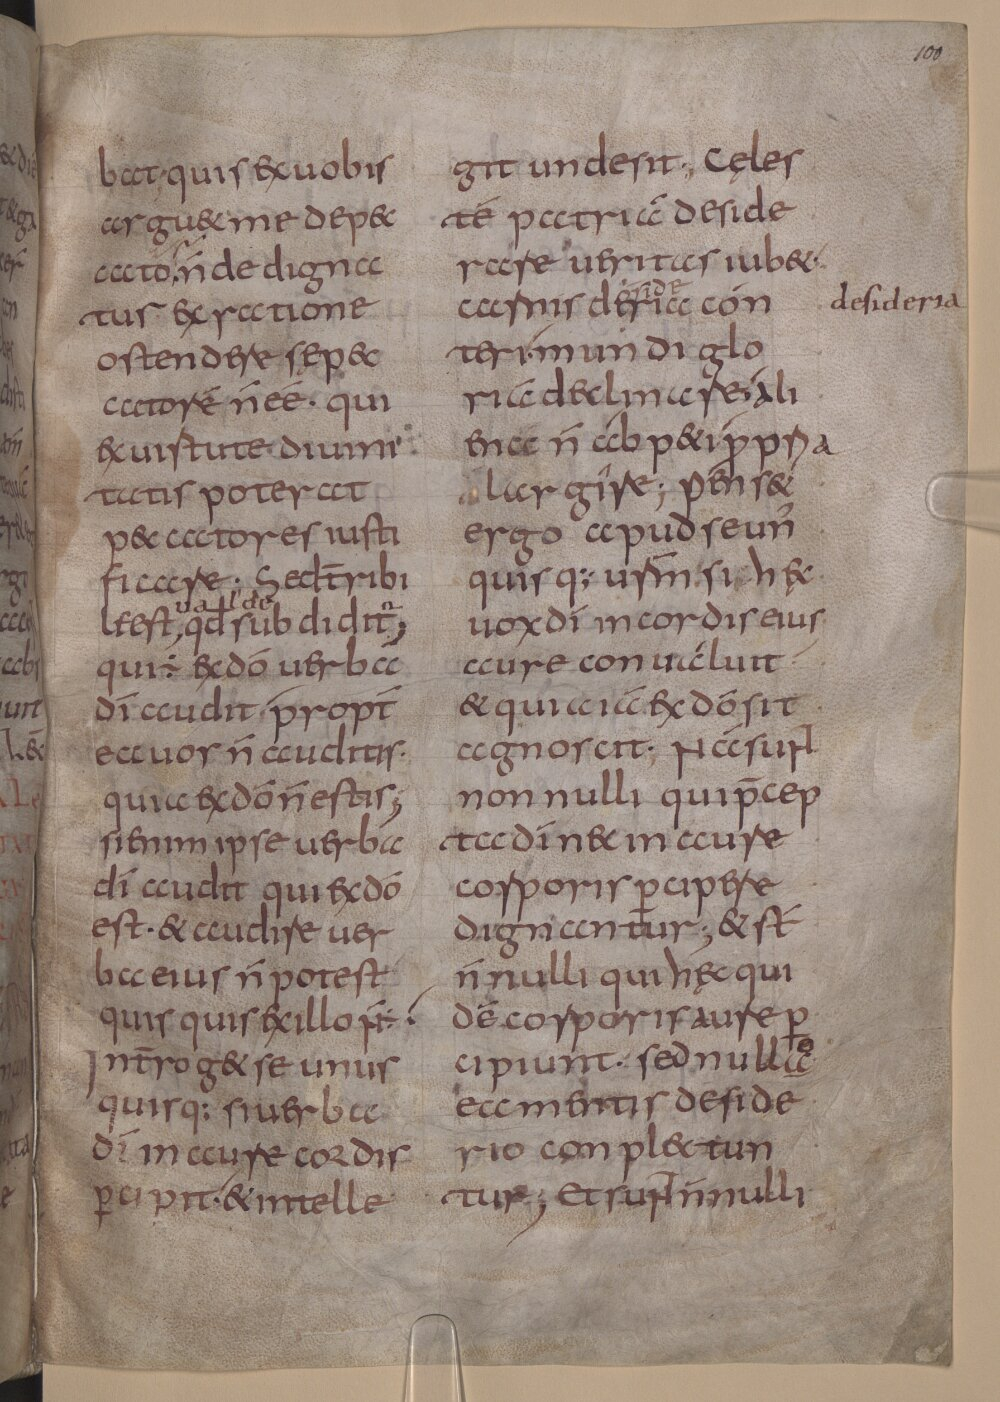 100
bat·quis ex uobis
arguet me depec
cato· n̄ dedigna
tur ex ratione
ostendere se pec
catorē n̄ eē· qui
ex uirtute diuini
tatis poterat
peccatores iusti
ficare· Sed t̄ribi
ualde
le est, qd̄ subditur;
qui ē ex dō uerba
dī audit, propt̄
ea uos n̄ auditis·
quia ex dō n̄ estis;
si enim ipse uerba
dī audit qui ex dō
est· & audire uer
ba eius n̄ potest
quisquis ex illo n̄ ē·
Int̄roget se unus
quisq; si uerba
dī in aure cordis
p̄cipit· & intelle
git unde sit; Cęles
tē patriā deside
rare ueritas iubet·
side
carnis desiria con desideria
teri· mundi glo
riā declinare· ali
ena n̄ appeti p̄pria
largire; penset
ergo apud se un̄
quisq; ur̄m si hęc
uox dī in cordis eius
aure conualuit
& quia iā ex dō sit
agnoscit; Nā sunt
nonnulli qui p̄cep
ta dī nec in aure
corporis p̄cipere
dignantur; & st̄
n̄nulli qui hęc qui
dē corporis aure p̄
cipiunt· sed nullo
ea mentis deside
rio conplectun
tur; Et sunt n̄nulli